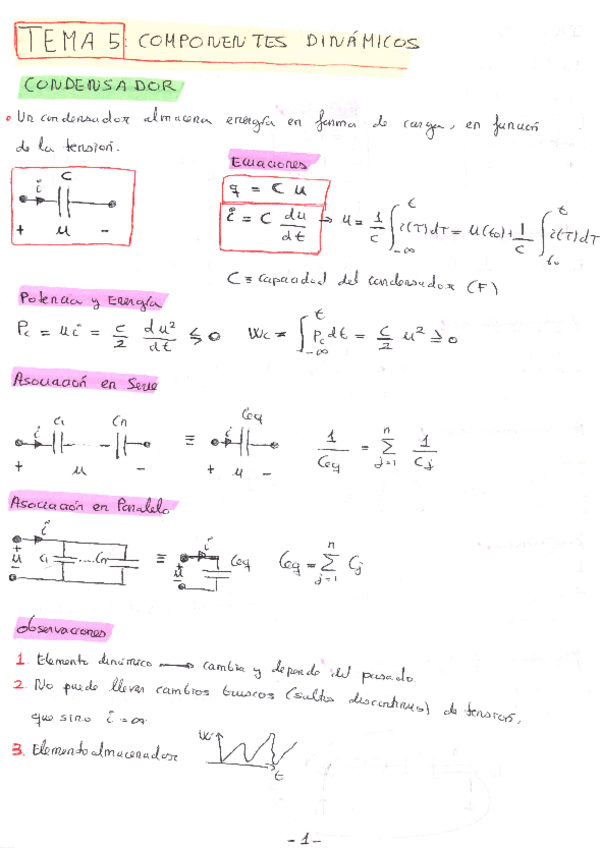 TEMA 5: COMPONENTES DINÁMICOS
CONDENSADOR
• Un condensador almacena energía en forma de carga, en función
de la tensión.
Ecuaciones
C
i
+ u -
q = C u
i = C du/dt → u = 1/C ∫_{-∞}^{t} i(τ)dτ = u(t₀) + 1/C ∫_{t₀}^{t} i(τ)dτ
C ≡ capacidad del condensador (F)
Potencia y Energía
Pc = ui = C/2 du²/dt ≶ 0 Wc = ∫_{-∞}^{t} Pc dt = C/2 u² ≥ 0
Asociación en Serie
i C1 ... Cn ≡ i Ceq 1/Ceq = Σ_{j=1}^{n} 1/Cj
+ u - + u -
Asociación en Paralelo
i + u - C1 .... Cn ≡ i + u - Ceq Ceq = Σ_{j=1}^{n} Cj
Observaciones
1. Elemento dinámico → cambia y depende del pasado.
2. No puede llevar cambios bruscos (saltos discontinuos) de tensión,
que sino i = ∞
3. Elemento almacenador
Wc
t
- 1 -